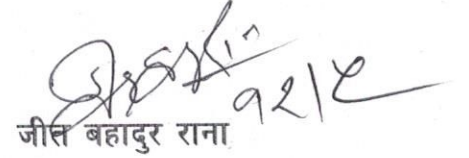 १२।५
जीत बहादुर राना